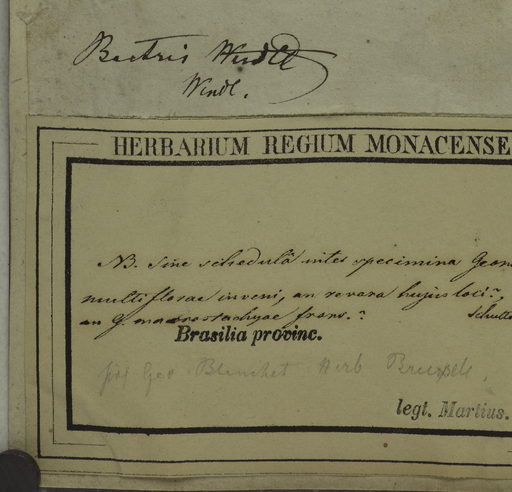 Bactris
Wendl.
HERBARIUM REGIUM MONACENSE
NB. sine schedulâ inter specimina Geon
multiflorae inveni, an revera hujus loci?,
an G. macrostachyae frons.? Schult
Brasilia provinc.
Blanchet Herb Bruxelle.
legt. Martius.